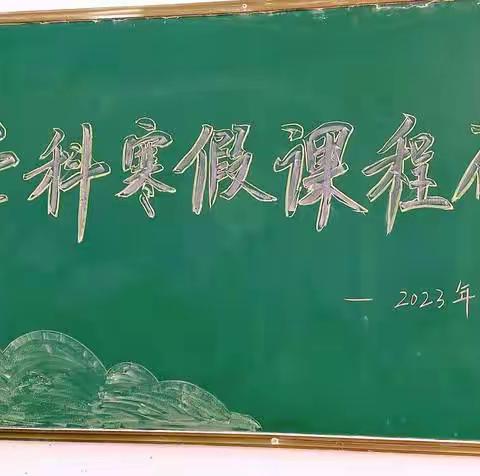 科寒假课程
— 2023年